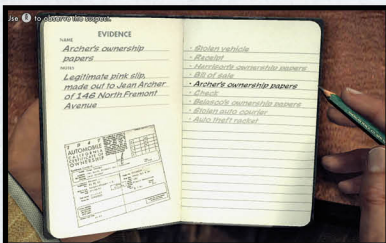 Use R to observe the suspect.
EVIDENCE
NAME
Archer's ownership
papers
NOTES
Legitimate pink slip,
made out to Jean Archer
of 146 North Fremont
Avenue
AUTOMOBILE
CALIFORNIA
OWNERSHIP
- Stolen vehicle
- Receipt
- Harrison's ownership papers
- Bill of sale
- Archer's ownership papers
- Check
- Belasco's ownership papers
- Stolen auto courier
- Auto theft racket